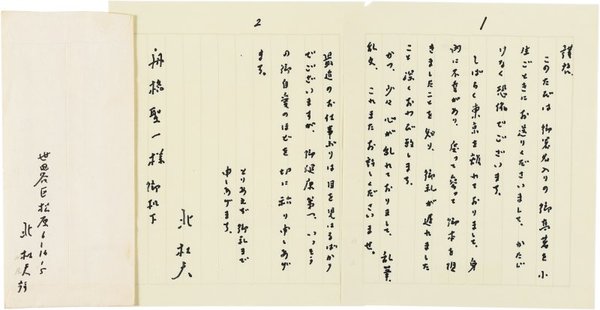 1
謹啓、
このたびは御署名入りの御高著を小
生ごときにお送りくださいまして、かたじ
けなく恐縮でございます。
しばらく東京を離れておりまして、身
内に不幸があり、御本を
きましたことを知り、御礼が遅れました
こと深くおわび致します。
かつ、少々心が乱れておりまして、乱筆
乱文、これまたお許しくださいませ。
2
最近のお仕事ぶりは目を見はるばかり
でございますが、御健康第一、いっそう
の御自愛のほどを切に祈り申しあげ
ます。
とりあえず御礼まで
申しあげます。
北杜夫
舟橋聖一様 御机下
世田谷区松原6-16-5
北杜夫